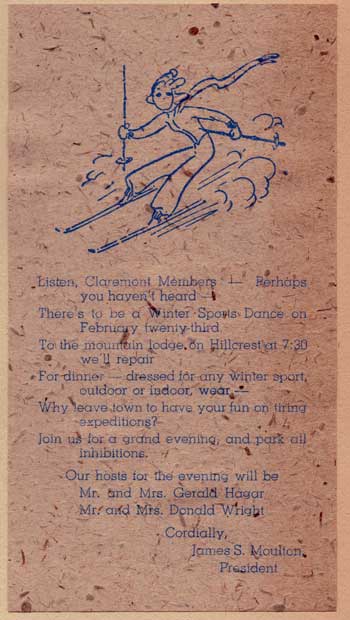 Listen, Claremont Members — Perhaps
you haven't heard —
There's to be a Winter Sports Dance on
February twenty-third.
To the mountain lodge on Hillcrest at 7:30
we'll repair
For dinner — dressed for any winter sport,
outdoor or indoor, wear —
Why leave town to have your fun on tiring
expeditions?
Join us for a grand evening, and park all
inhibitions.
Our hosts for the evening will be
Mr. and Mrs. Gerald Hagar
Mr. and Mrs. Donald Wright
Cordially,
James S. Moulton,
President